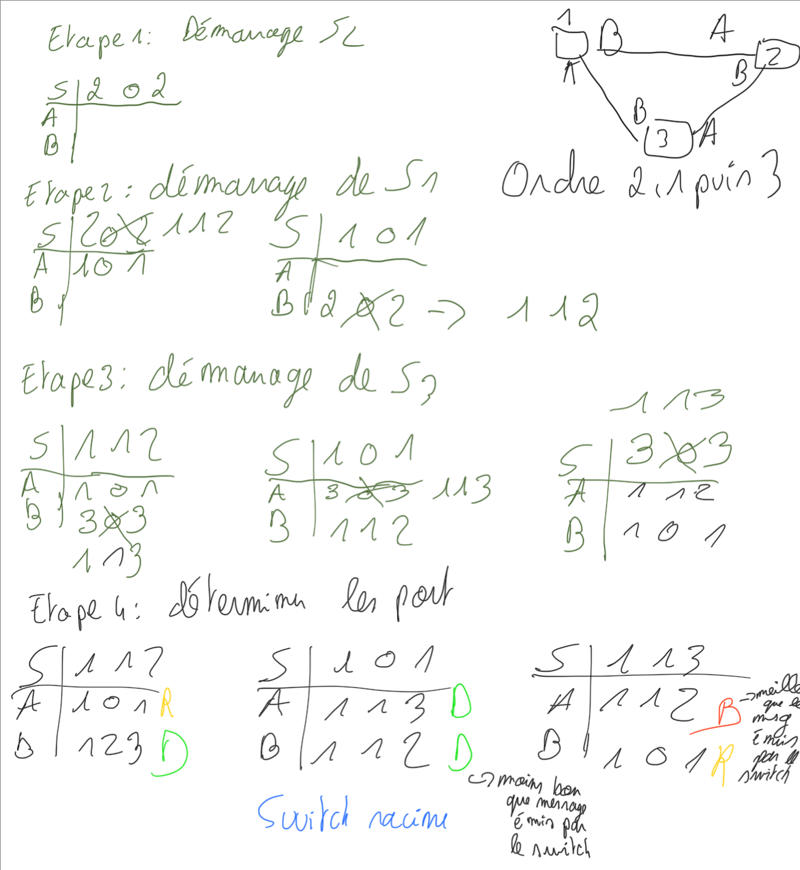 Etape 1: Démarrage S2
S 2 0 2
A
B
1 B A 2
A B
B 3 A
Ordre 2, 1 puis 3
Etape 2: démarrage de S1
S 202 112
A 1 0 1
B
S 1 0 1
A
B 2 0 2 -> 1 1 2
Etape 3: démarrage de S3
S 1 1 2
A 1 0 1
B 3 0 3
1 1 3
S 1 0 1
A 3 0 3 113
B 1 1 2
1 1 3
S 3 0 3
A 1 1 2
B 1 0 1
Etape 4: déterminer les port
S 1 1 2
A 1 0 1 R
B 1 2 3 D
S 1 0 1
A 1 1 3 D
B 1 1 2 D
Switch racine
-> moins bon
que message
émis par
le switch
S 1 1 3
A 1 1 2 B
B 1 0 1 R
-> meille
que le
msg
émis
par le
switch